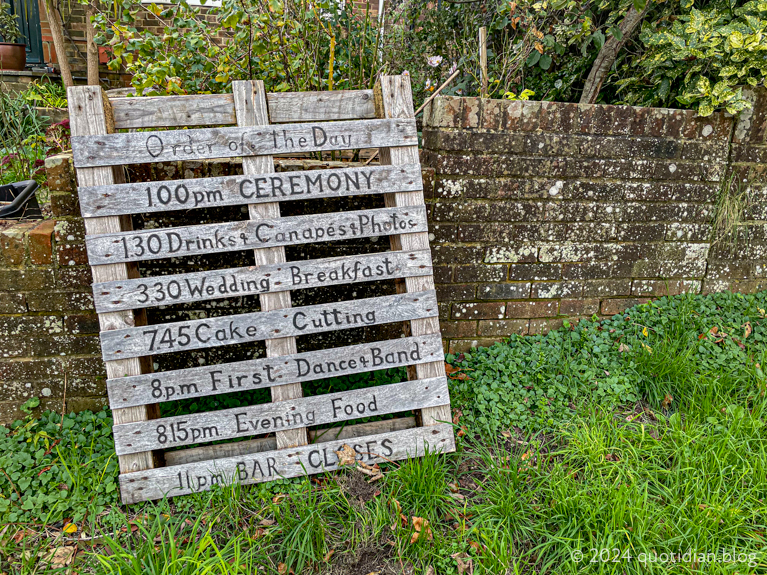 Order of the Day
1.00pm CEREMONY
1.30 Drinks & Canapés & Photos
3 30 Wedding Breakfast
7 45 Cake Cutting
8p.m First Dance & Band
8.15pm Evening Food
11pm BAR CLOSES
© 2024 quotidian.blog